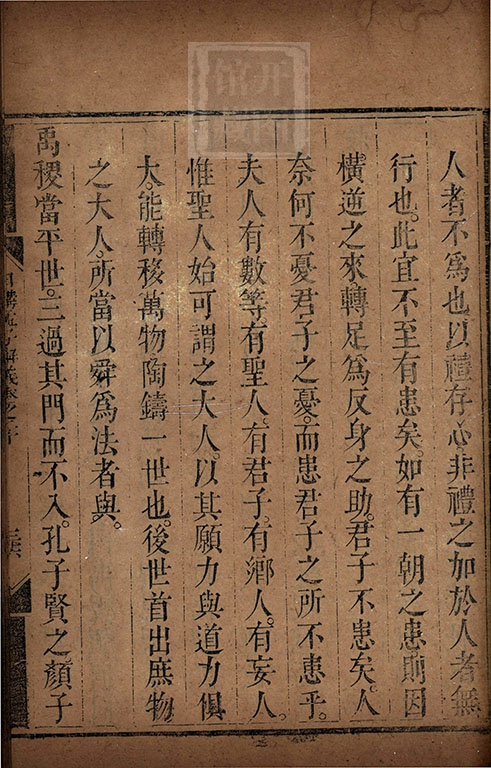 人者不爲也以禮存心非禮之加於人者無
行也。此宜不至有患矣。如有一朝之患則因
橫逆之來。轉足爲反身之助。君子不患矣。人
奈何不憂君子之憂。而患君子之所不患乎。
夫人有數等有聖人。有君子。有鄉人。有妄人。
惟聖人始可謂之大人。以其願力與道力俱
大。能轉移萬物陶鑄一世也。後世首出庶物
之大人。所當以舜爲法者與。
禹稷當平世。三過其門而不入。孔子賢之顏子